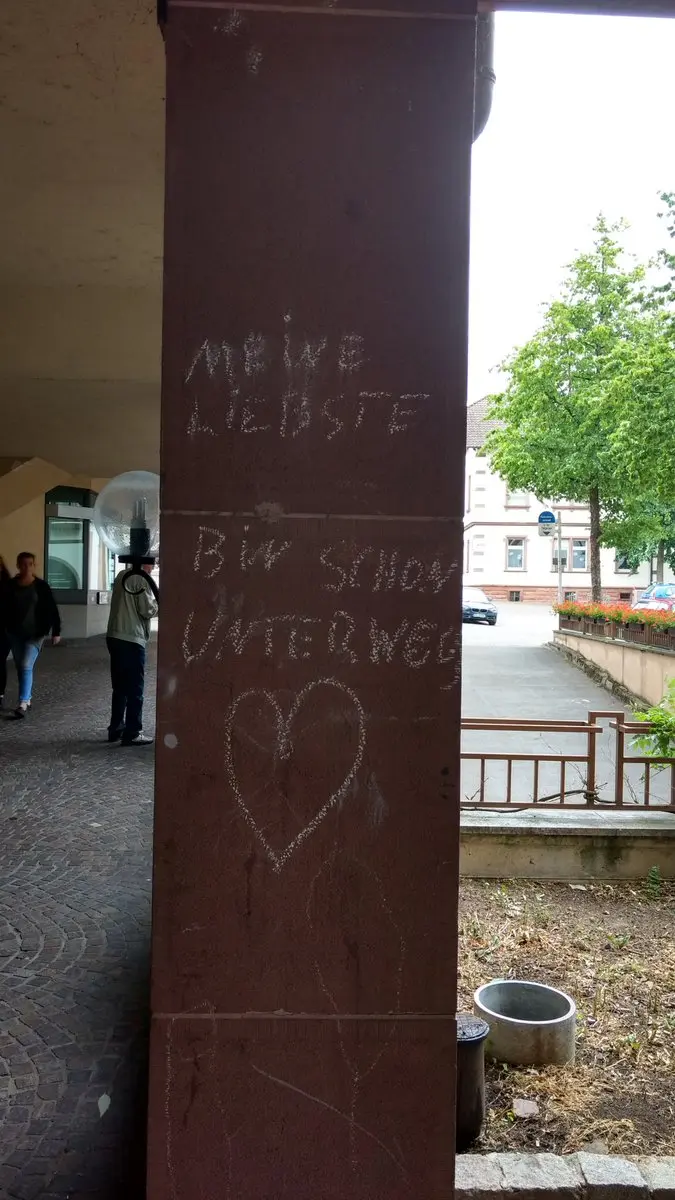 MEINE
LIEBSTE
BIN SCHON
UNTERWEG